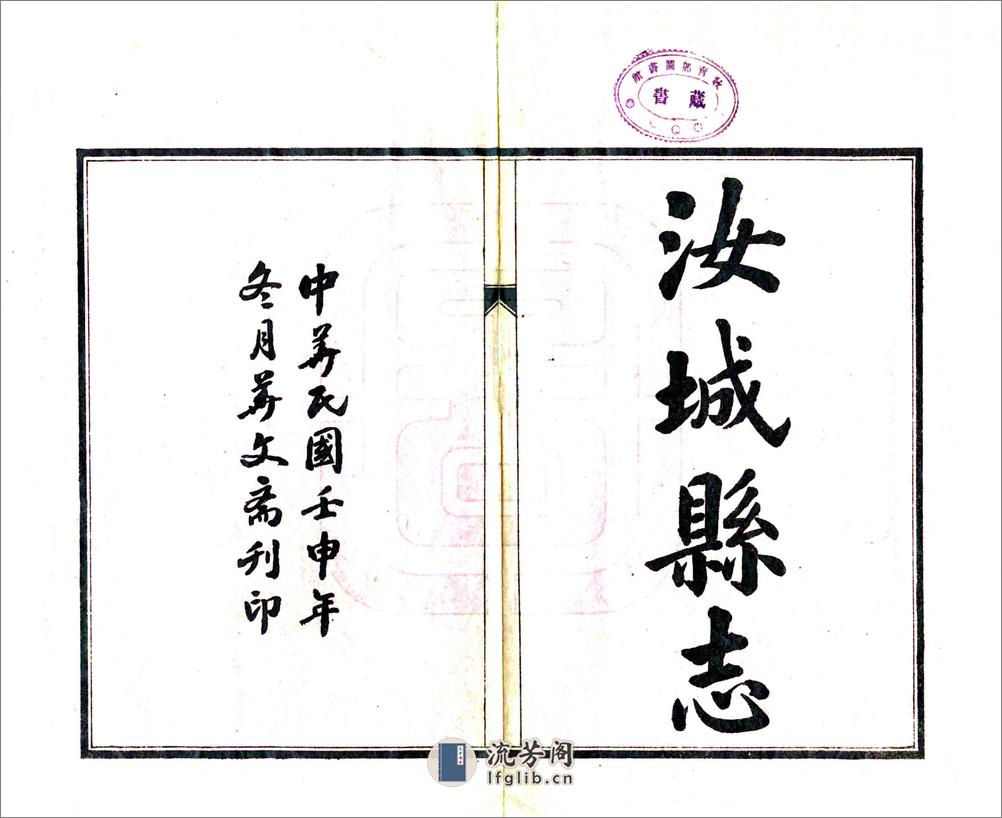 汝城縣志
中華民國壬申年
冬月華文斋刊印
教育部圖書館
藏書
流芳阁
lfglib.cn